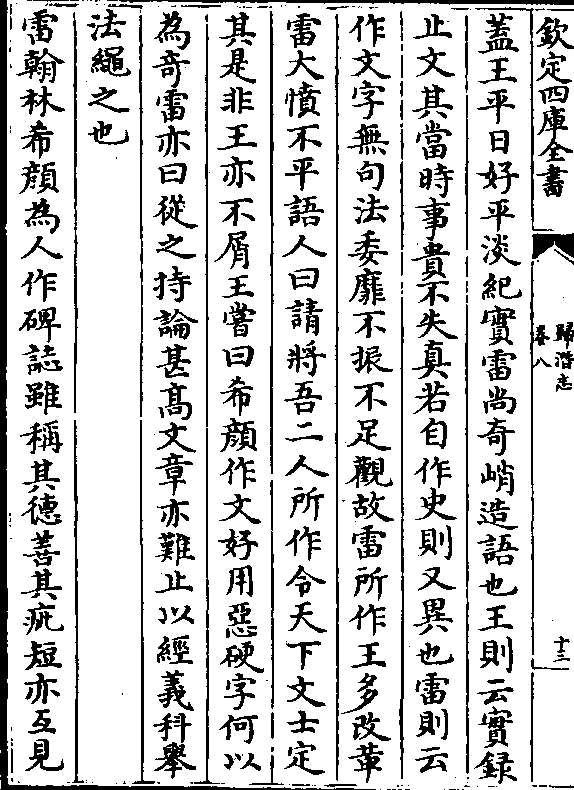 欽定四庫全書
歸潛志
卷八
十三
蓋王平日好平淡紀實雷尚奇峭造語也王則云實録
止文其當時事貴不失真若自作史則又異也雷則云
作文字無句法委靡不振不足觀故雷所作王多改革
雷大憤不平語人曰請將吾二人所作令天下文士定
其是非王亦不屑王嘗曰希顔作文好用惡硬字何以
為奇雷亦曰從之持論甚髙文章亦難止以經義科舉
法繩之也
雷翰林希顔為人作碑誌雖稱其徳善其疵短亦互見